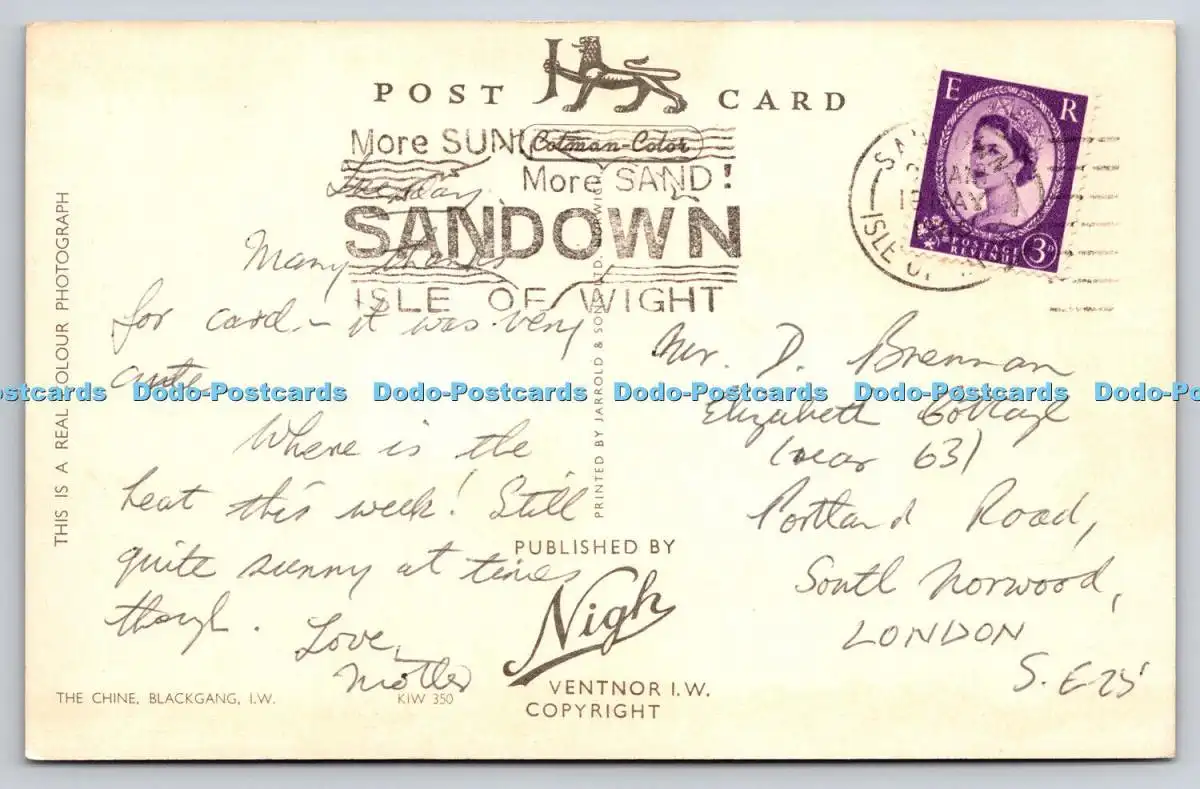 POST CARD
More SUN!
Cotman-Color
More SAND!
Tuesday
SANDOWN
ISLE OF WIGHT
Many thanks
for card – it was very
cute.
Where is the
heat this week! Still
quite sunny at times
though.
Love,
Mother
THE CHINE, BLACKGANG, I.W.
KIW 350
THIS IS A REAL COLOUR PHOTOGRAPH
PRINTED BY JARROLD & SONS LTD. NORWICH
PUBLISHED BY
Nigh
VENTNOR I.W.
COPYRIGHT
E R
POSTAGE
REVENUE
3D
AM
MAY
ISLE OF
Mr. D. Brennan
Elizabeth Cottage
(near 63)
Portland Road,
South Norwood,
LONDON
S.E 25
Dodo-Postcards Dodo-Postcards Dodo-Postcards Dodo-Postcards Dodo-Postcards